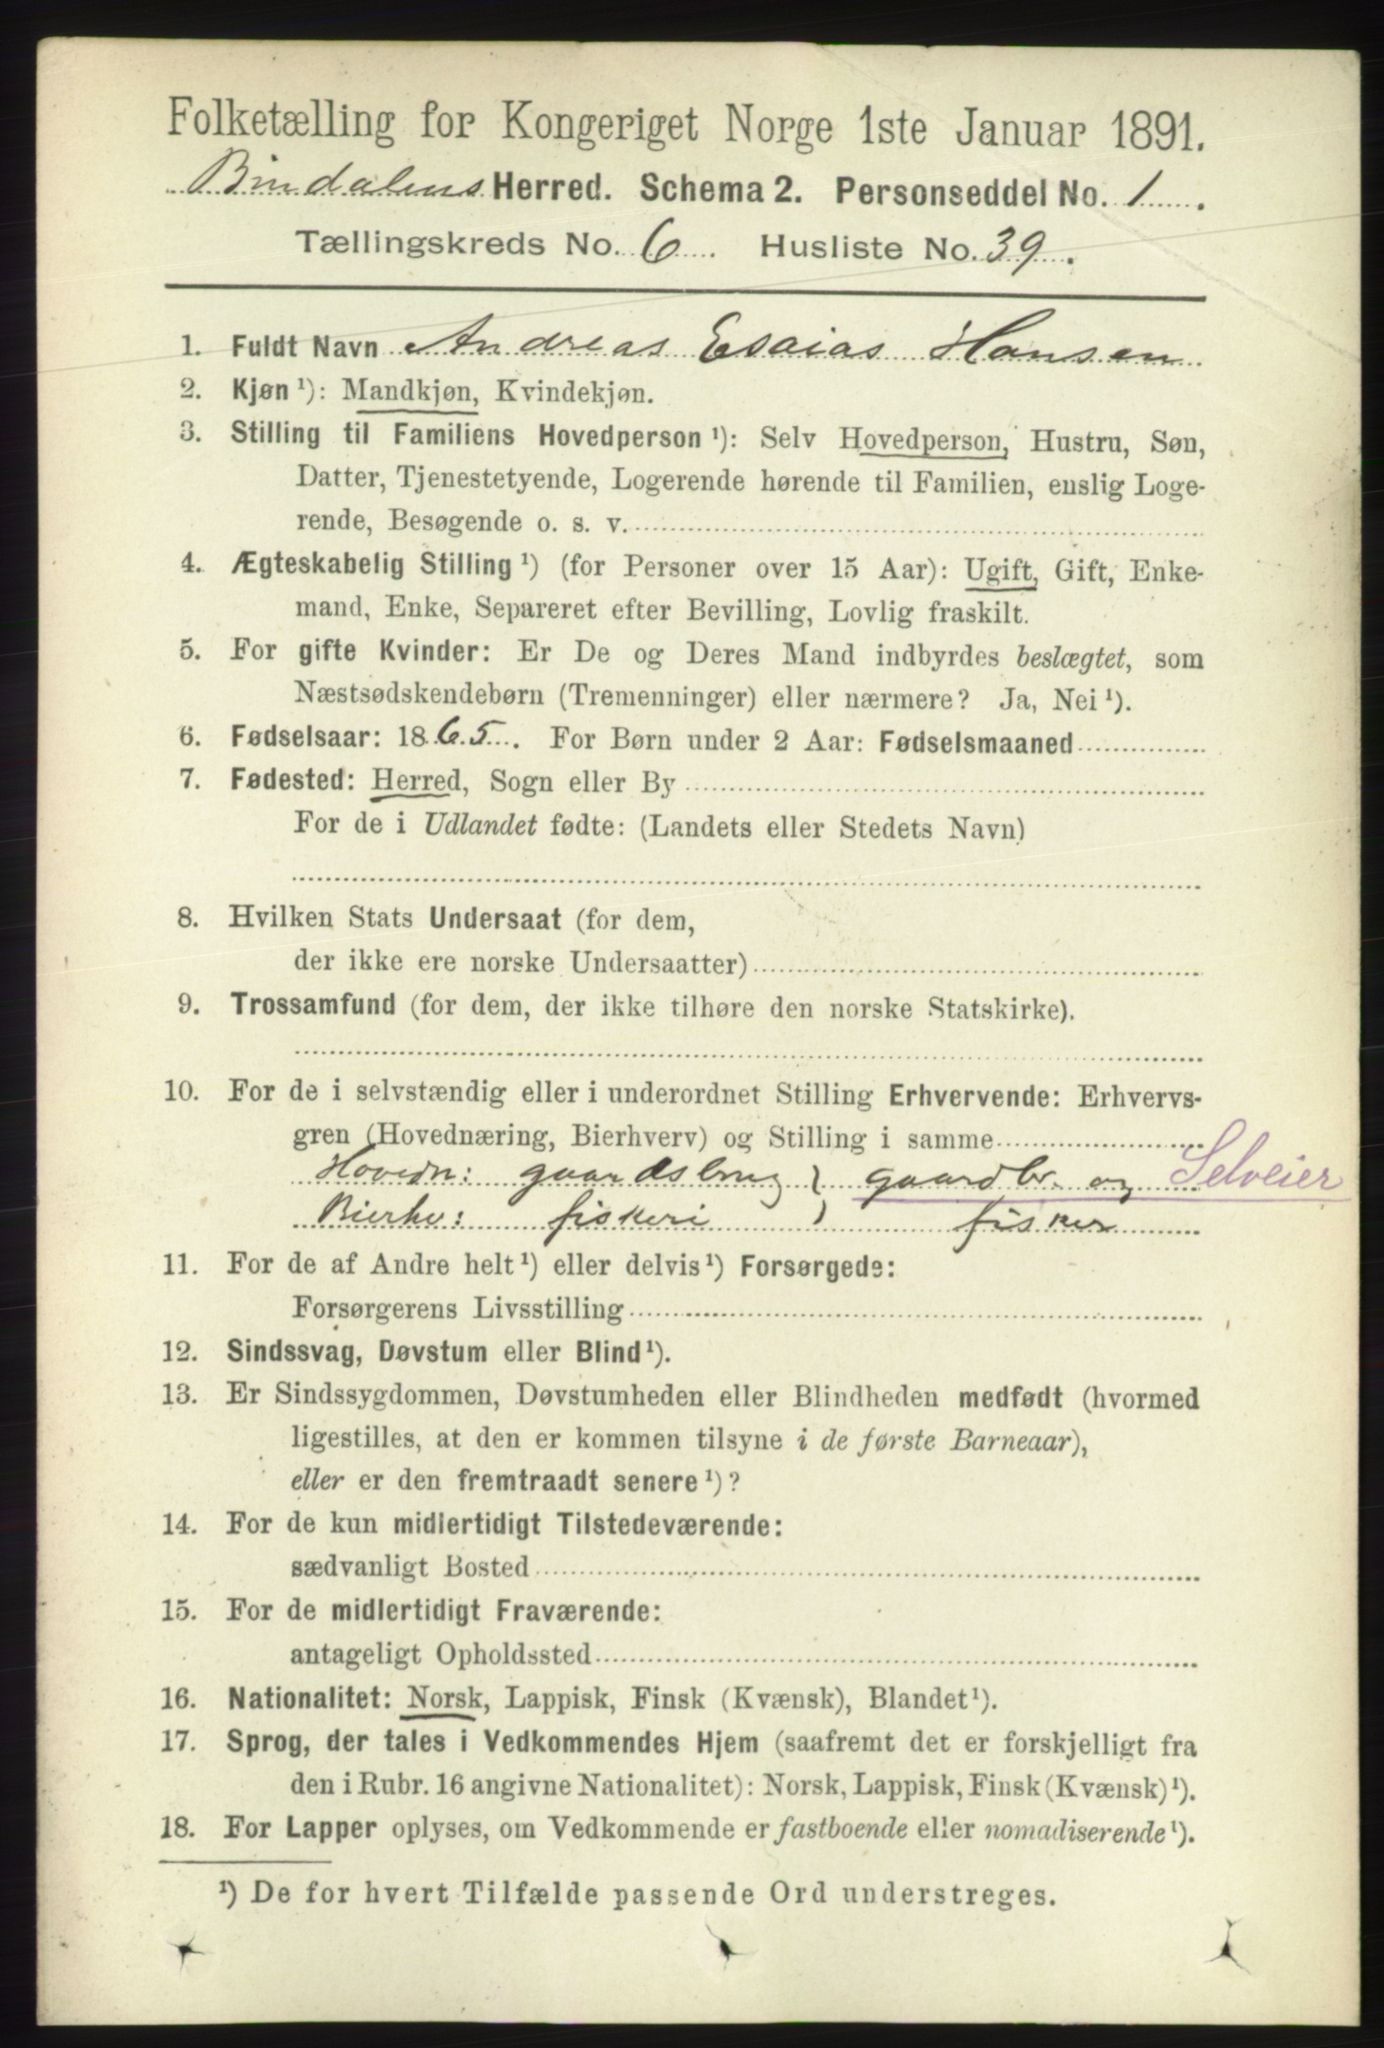 Folketælling for Kongeriget Norge 1ste Januar 1891.
Bindalens Herred. Schema 2. Personseddel No. 1.
Tællingskreds No. 6. Husliste No. 39.
1. Fuldt Navn Andreas Esaias Hansen
2. Kjøn ¹): Mandkjøn, Kvindekjøn.
3. Stilling til Familiens Hovedperson ¹): Selv Hovedperson, Hustru, Søn,
Datter, Tjenestetyende, Logerende hørende til Familien, enslig Loge-
rende, Besøgende o. s. v.
4. Ægteskabelig Stilling ¹) (for Personer over 15 Aar): Ugift, Gift, Enke-
mand, Enke, Separeret efter Bevilling, Lovlig fraskilt.
5. For gifte Kvinder: Er De og Deres Mand indbyrdes beslægtet, som
Næstsødskendebørn (Tremenninger) eller nærmere? Ja, Nei ¹).
6. Fødselsaar: 1865. For Børn under 2 Aar: Fødselsmaaned
7. Fødested: Herred, Sogn eller By
For de i Udlandet fødte: (Landets eller Stedets Navn)
8. Hvilken Stats Undersaat (for dem,
der ikke ere norske Undersaatter)
9. Trossamfund (for dem, der ikke tilhøre den norske Statskirke).
10. For de i selvstændig eller i underordnet Stilling Erhvervende: Erhvervs-
gren (Hovednæring, Bierhverv) og Stilling i samme
Hovedn: gaardsbrug } gaardbr. og Selveier
Bierhv: fiskeri } fisker
11. For de af Andre helt ¹) eller delvis ¹) Forsørgede:
Forsørgerens Livsstilling
12. Sindssvag, Døvstum eller Blind ¹).
13. Er Sindssygdommen, Døvstumheden eller Blindheden medfødt (hvormed
ligestilles, at den er kommen tilsyne i de første Barneaar),
eller er den fremtraadt senere ¹)?
14. For de kun midlertidigt Tilstedeværende:
sædvanligt Bosted
15. For de midlertidigt Fraværende:
antageligt Opholdssted
16. Nationalitet: Norsk, Lappisk, Finsk (Kvænsk), Blandet ¹).
17. Sprog, der tales i Vedkommendes Hjem (saafremt det er forskjelligt fra
den i Rubr. 16 angivne Nationalitet): Norsk, Lappisk, Finsk (Kvænsk) ¹).
18. For Lapper oplyses, om Vedkommende er fastboende eller nomadiserende ¹).
¹) De for hvert Tilfælde passende Ord understreges.